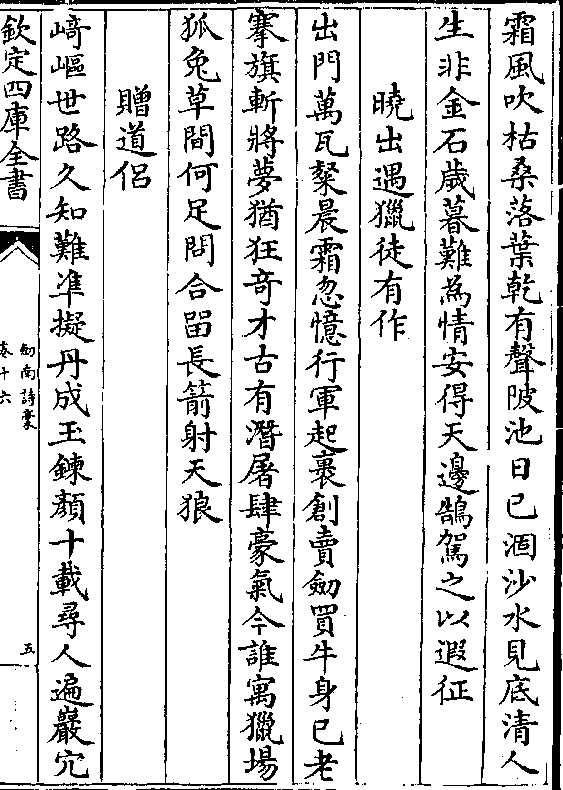 霜風吹枯桑落葉乾有聲陂池日已涸沙水見底清人
生非金石歲暮難為情安得天邊鵠駕之以遐征
曉出遇獵徒有作
出門萬瓦粲晨霜忽憶行軍起裹創賣劒買牛身已老
搴旗斬將夢猶狂奇才古有潛屠肆豪氣今誰寓獵場
狐兔草間何足問合留長箭射天狼
贈道侶
﨑嶇世路久知難準擬丹成玉鍊顏十載尋人遍巖穴
欽定四庫全書
劒南詩藁
卷十六
五